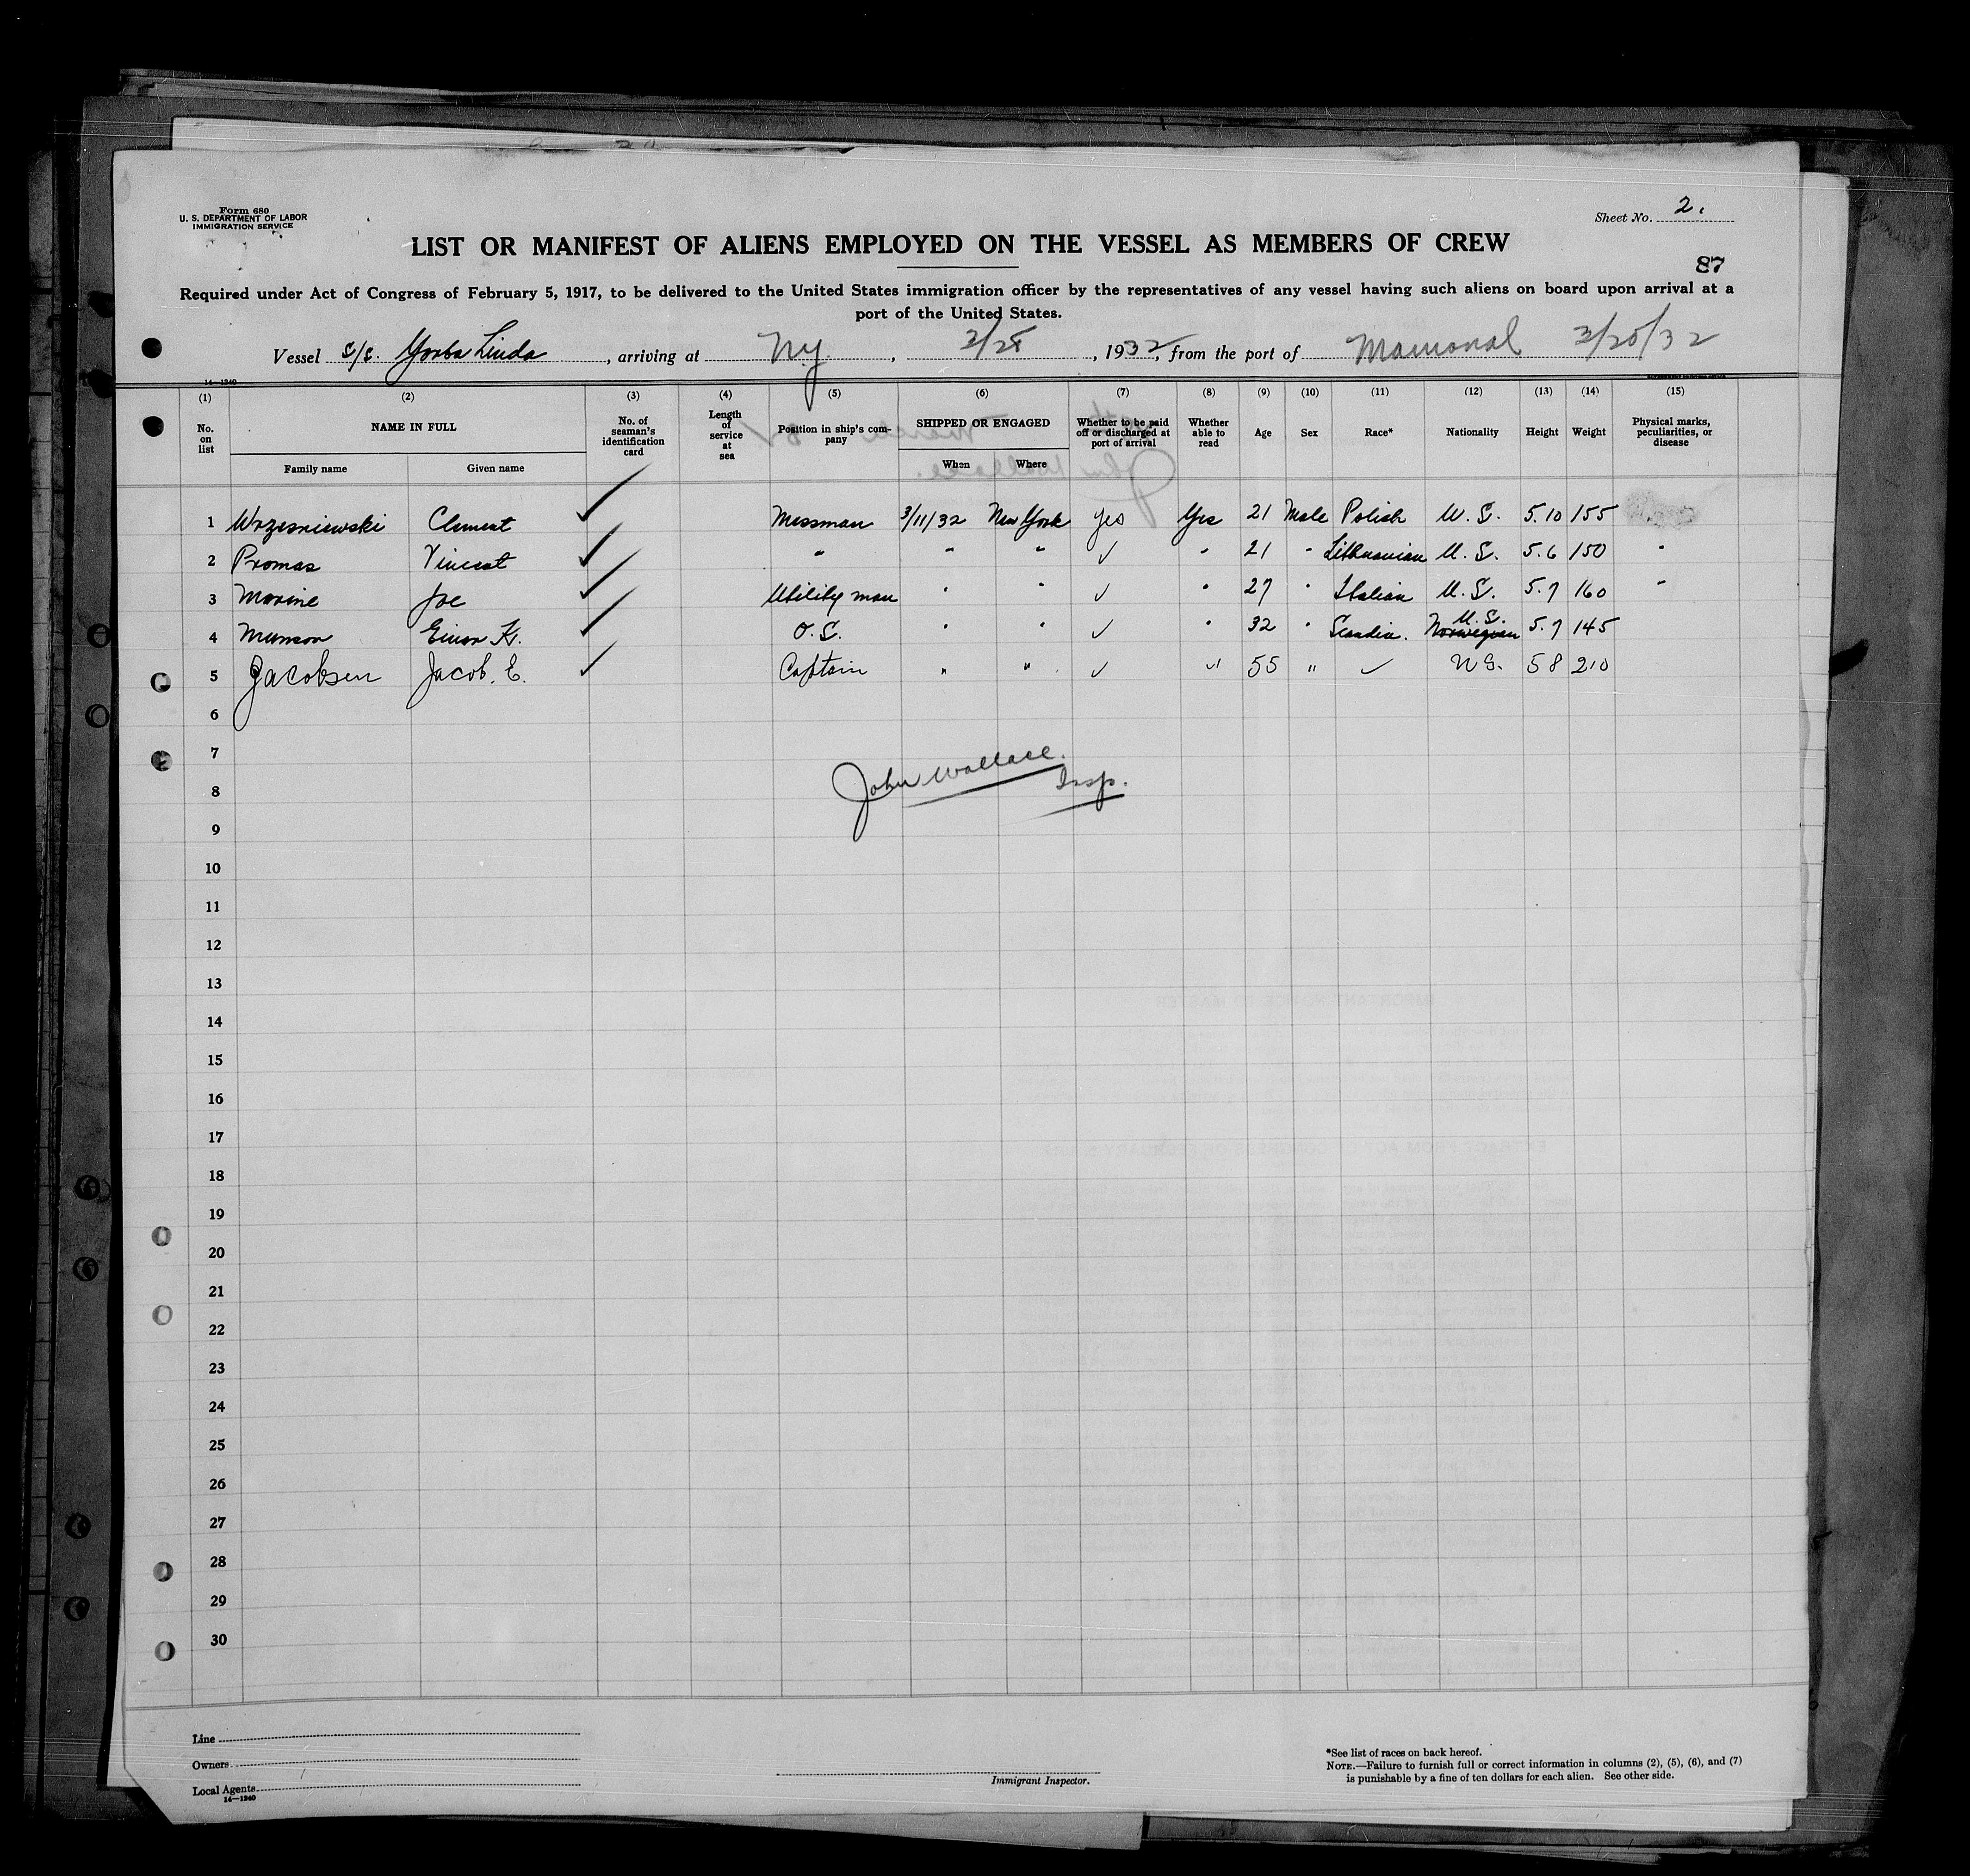 Form 680
U. S. DEPARTMENT OF LABOR
IMMIGRATION SERVICE
Sheet No. 2.
LIST OR MANIFEST OF ALIENS EMPLOYED ON THE VESSEL AS MEMBERS OF CREW
87
Required under Act of Congress of February 5, 1917, to be delivered to the United States immigration officer by the representatives of any vessel having such aliens on board upon arrival at a
port of the United States.
Vessel S/S. Yorba Linda, arriving at Ny., 3/28, 1932, from the port of Mamonal 3/20/32
14—1240
(1) (2) (3) (4) (5) (6) (7) (8) (9) (10) (11) (12) (13) (14) (15)
No. on list NAME IN FULL No. of seaman's identification card Length of service at sea Position in ship's company SHIPPED OR ENGAGED Whether to be paid off or discharged at port of arrival Whether able to read Age Sex Race* Nationality Height Weight Physical marks, peculiarities, or disease
Family name Given name When Where
1 Wrzesniewski Clement ✓ Messman 3/11/32 New York yes Yes 21 Male Polish U. S. 5.10 155
2 Promas Vincent ✓ " " " ✓ " 21 " Lithuanian U. S. 5.6 150 "
3 Morine Joe ✓ Utility man " " ✓ " 27 " Italian U. S. 5.7 160 "
4 Munson Einar K. ✓ O. S. " " ✓ " 32 " Scandin. Norwegian U. S. 5.7 145
5 Jacobsen Jacob. E. ✓ Captain " " ✓ " 55 " ✓ U S. 5 8 210
6
7
8
John Wallace.
Insp.
9
10
11
12
13
14
15
16
17
18
19
20
21
22
23
24
25
26
27
28
29
30
Line
Owners
Local Agents
14—1240
Immigrant Inspector.
*See list of races on back hereof.
NOTE.—Failure to furnish full or correct information in columns (2), (5), (6), and (7)
is punishable by a fine of ten dollars for each alien. See other side.